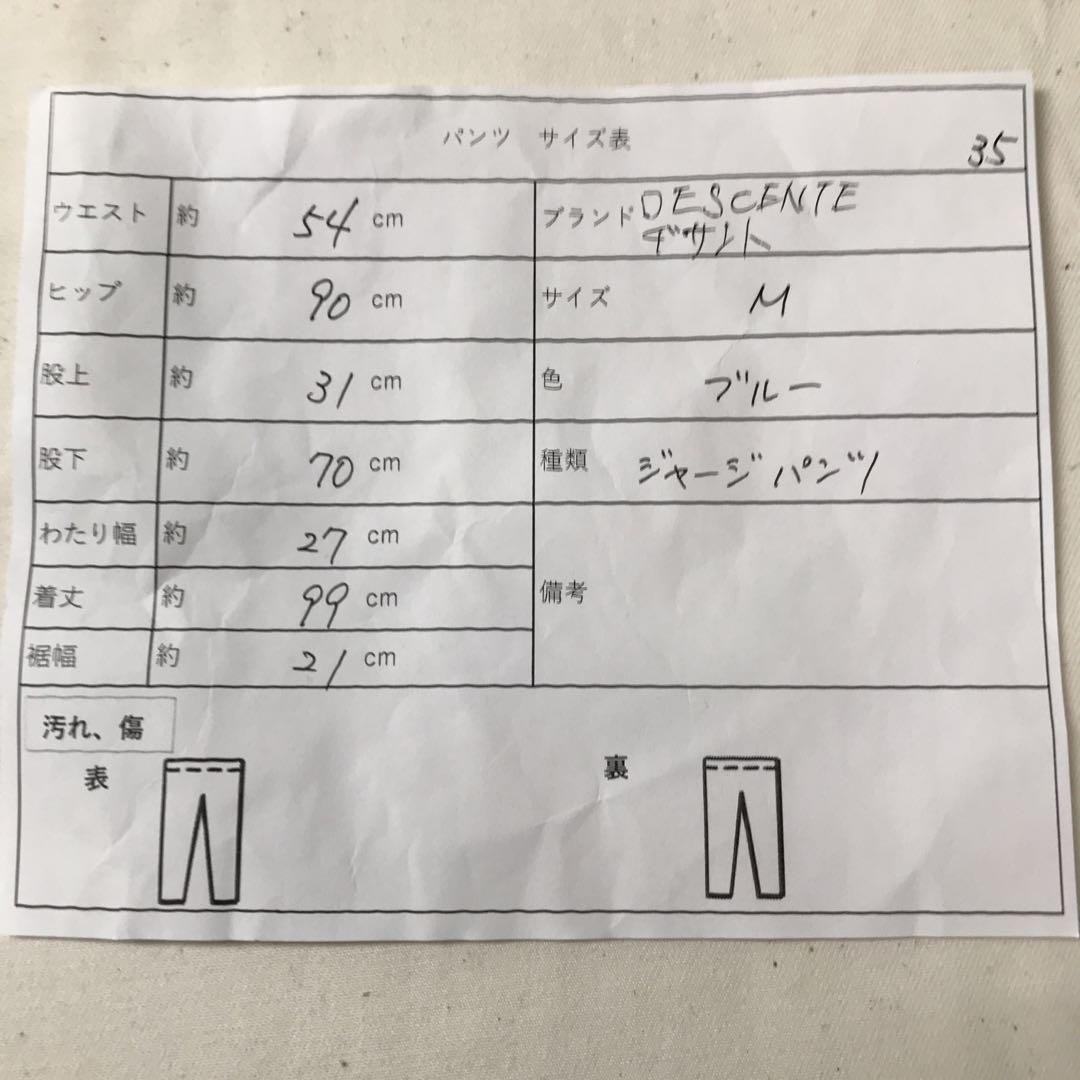 パンツ サイズ表
35
ウエスト 約 54 cm
ブランド DESCENTE
デサント
ヒップ 約 90 cm
サイズ M
股上 約 31 cm
色 ブルー
股下 約 70 cm
種類 ジャージパンツ
わたり幅 約 27 cm
着丈 約 99 cm
備考
裾幅 約 21 cm
汚れ、傷
表
裏